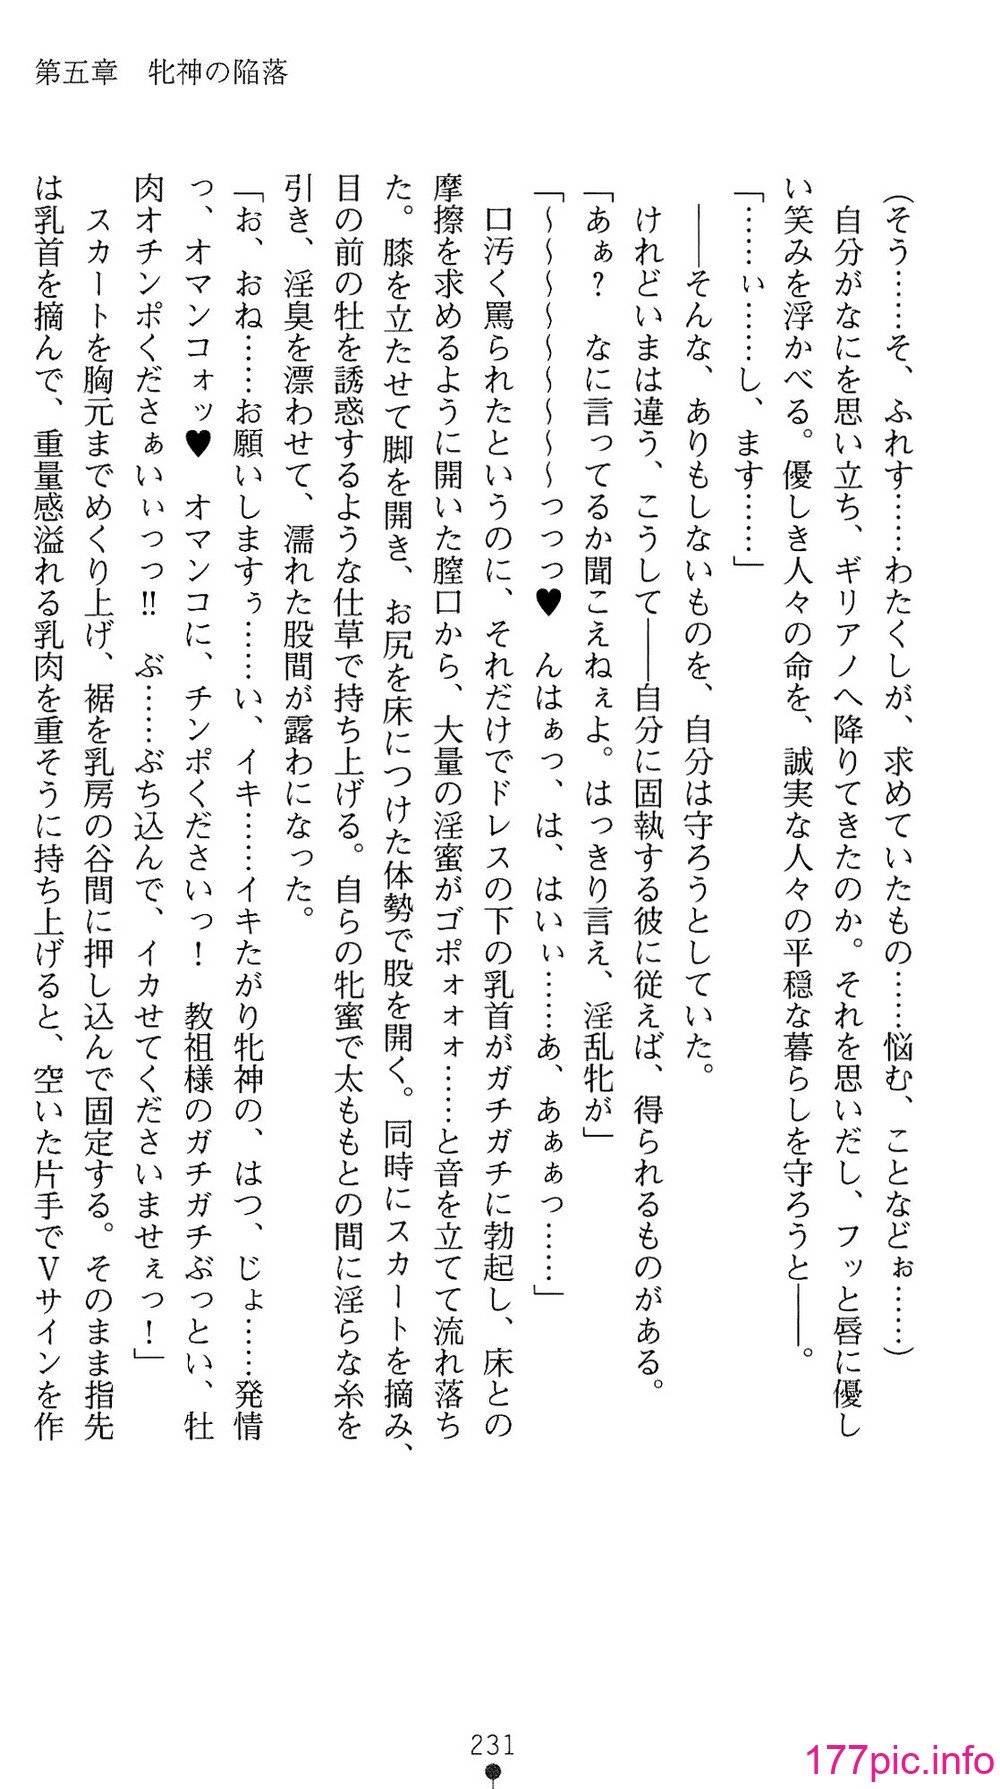 第五章　牝神の陥落
（そう……そ、ふれす……わたくしが、求めていたもの……悩む、ことなどぉ……）
　自分がなにを思い立ち、ギリアノへ降りてきたのか。それを思いだし、フッと唇に優し
い笑みを浮かべる。優しき人々の命を、誠実な人々の平穏な暮らしを守ろうと――。
「……ぃ……し、ます……」
　――そんな、ありもしないものを、自分は守ろうとしていた。
　けれどいまは違う、こうして――自分に固執する彼に従えば、得られるものがある。
「あぁ？　なに言ってるか聞こえねぇよ。はっきり言え、淫乱牝が」
「～～～～～～～～～っっっ♥　んはぁっ、は、はいぃ……あ、あぁぁっ……」
　口汚く罵られたというのに、それだけでドレスの下の乳首がガチガチに勃起し、床との
摩擦を求めるように開いた膣口から、大量の淫蜜がゴポォォォ……と音を立てて流れ落ち
た。膝を立たせて脚を開き、お尻を床につけた体勢で股を開く。同時にスカートを摘み、
目の前の牡を誘惑するような仕草で持ち上げる。自らの牝蜜で太ももとの間に淫らな糸を
引き、淫臭を漂わせて、濡れた股間が露わになった。
「お、おね……お願いしますぅ……い、イキ……イキたがり牝神の、はつ、じょ……発情
っ、オマンコォッ♥　オマンコに、チンポくださいっ！　教祖様のガチガチぶっとい、牡
肉オチンポくださぁいぃっっ!!　ぶ……ぶち込んで、イカせてくださいませぇっ！」
　スカートを胸元までめくり上げ、裾を乳房の谷間に押し込んで固定する。そのまま指先
は乳首を摘んで、重量感溢れる乳肉を重そうに持ち上げると、空いた片手でＶサインを作
231
177pic.info